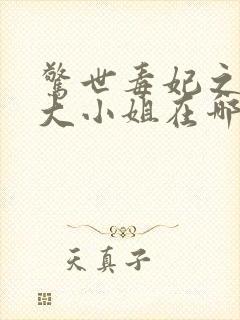 惊世毒妃之
大小姐在哪
天真子